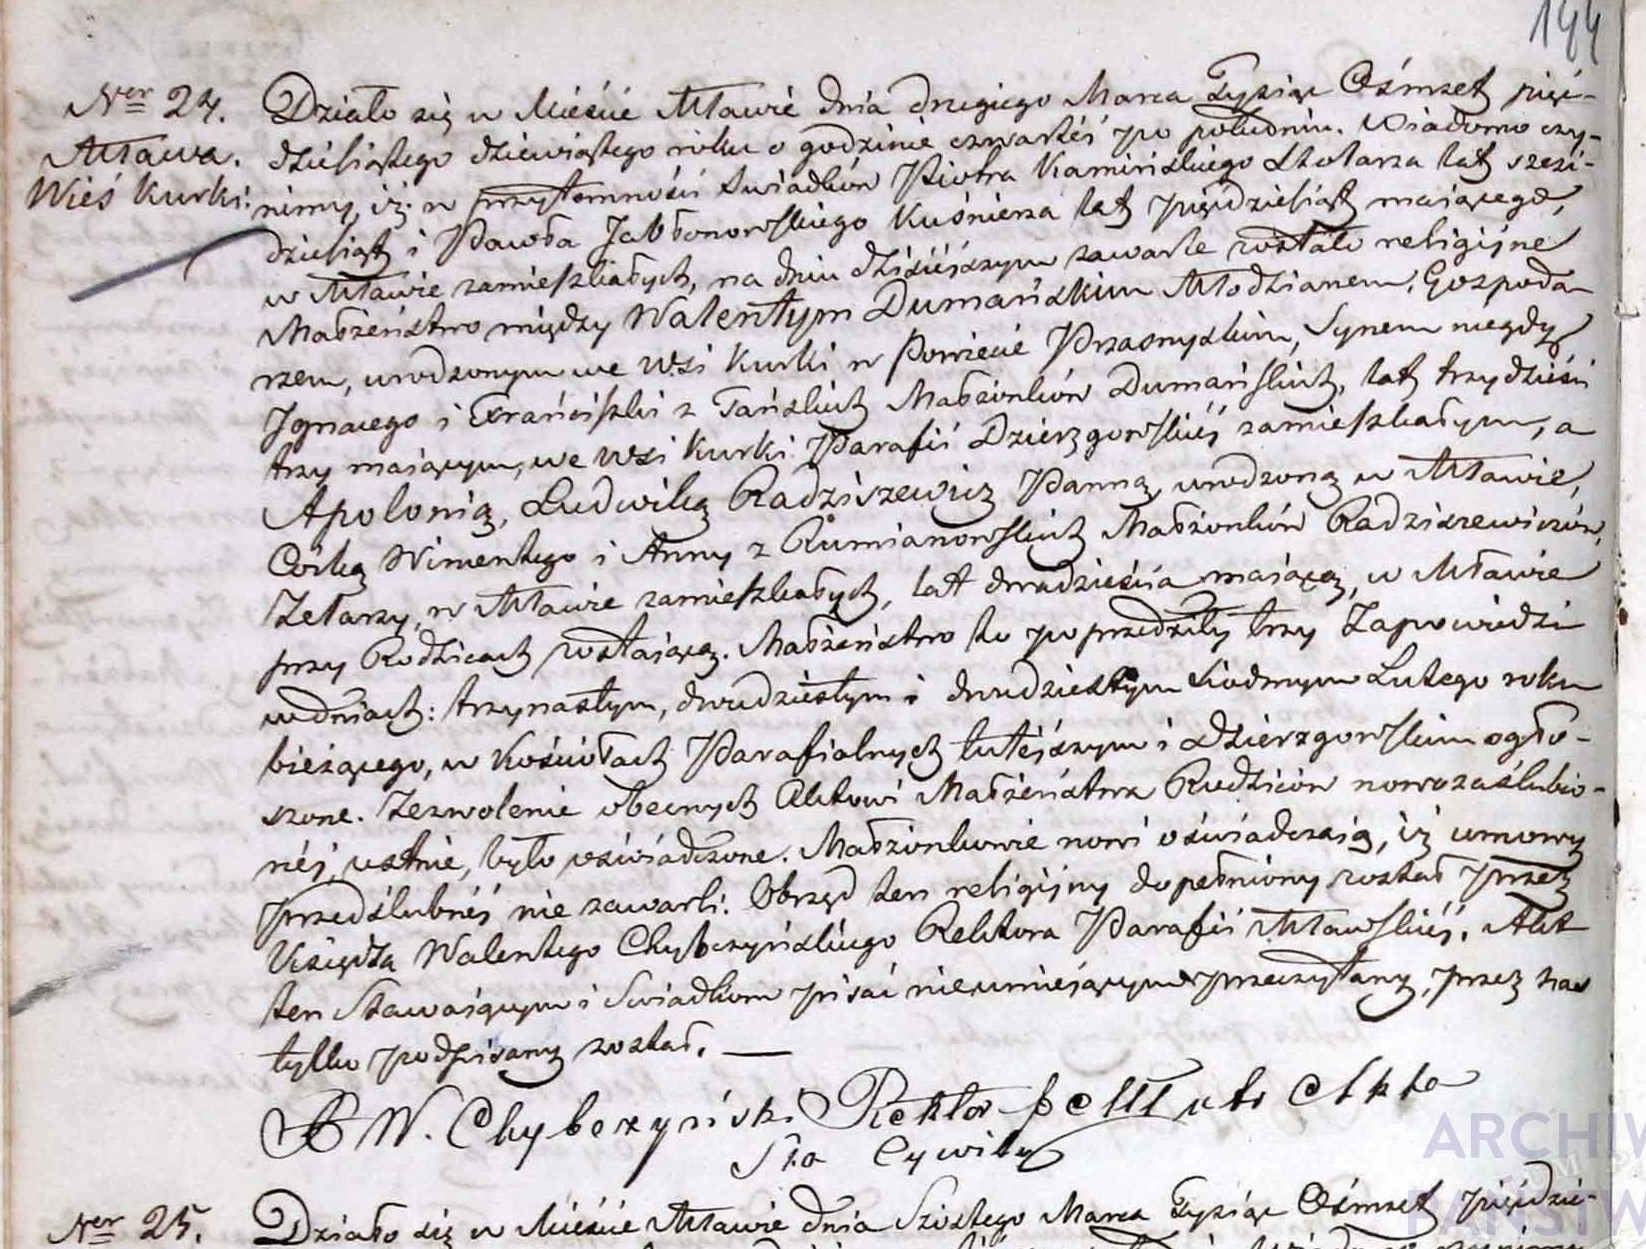 144
Ner 24. Działo się w Mieście Mławie dnia drugiego Marca Tysiąc Ośmset pięć-
Mława. dziesiątego dziewiątego roku o godzinie czwartéj po południu. Wiadomo czy-
Wieś Kurki. nimy, iż w przytomności świadków Piotra Kamińskiego Stolarza lat sześć-
dziesiąt i Pawła Jabłonowskiego Kuśnierza lat pięćdziesiąt maiącego,
w Mławie zamieszkałych, na dniu dzisiéjszym zawarte zostało religijne
Małżeństwo między Walentym Dumańskim Młodzianem, Gospoda-
rzem, urodzonym we wsi Kurki w Powiecie Przasnyskim, Synem niegdy
Ignacego i Franciszki z Tańskich Małżonków Dumańskich, lat trzydzieści
trzy maiącym, we wsi Kurki Parafii Dzierzgowskiéj zamieszkałym, a
Apolonią, Ludwiką Radziszewicz Panną, urodzoną w Mławie,
Córką Wincentego i Anny z Rumianowskich Małżonków Radziszewiczów,
w Mławie zamieszkałych, lat dwadzieścia maiącą, w Mławie
przy Rodzicach zostaiącą. Małżeństwo to poprzedziły trzy Zapowiedzi
w dniach: trzynastym, dwudziestym i dwudziestym siódmym Lutego roku
bieżącego, w Kościołach Parafialnych tutéjszym i Dzierzgowskim ogło-
szone. Zezwolenie obecnych Aktowi Małżeństwa Rodziców nowozaślubio-
néj, ustnie, było oświadczone. Małżonkowie nowi oświadczaią, iż umowy
przedślubnéj nie zawarli. Obrzęd ten religijny dopełniony został przez
Księdza Walentego Chybczyńskiego Rektora Parafii Mławskiéj. Akt
ten Stawaiącym i Świadkom pisać nieumiejącym przeczytany, przez nas
tylko podpisany został. —
X W. Chybczyński Rektor
Sta Cywilny
Ner 25. Działo się w Mieście Mławie dnia Szóstego Marca Tysiąc Ośmset pięćdzie-
ARCHIW
PAŃSTW